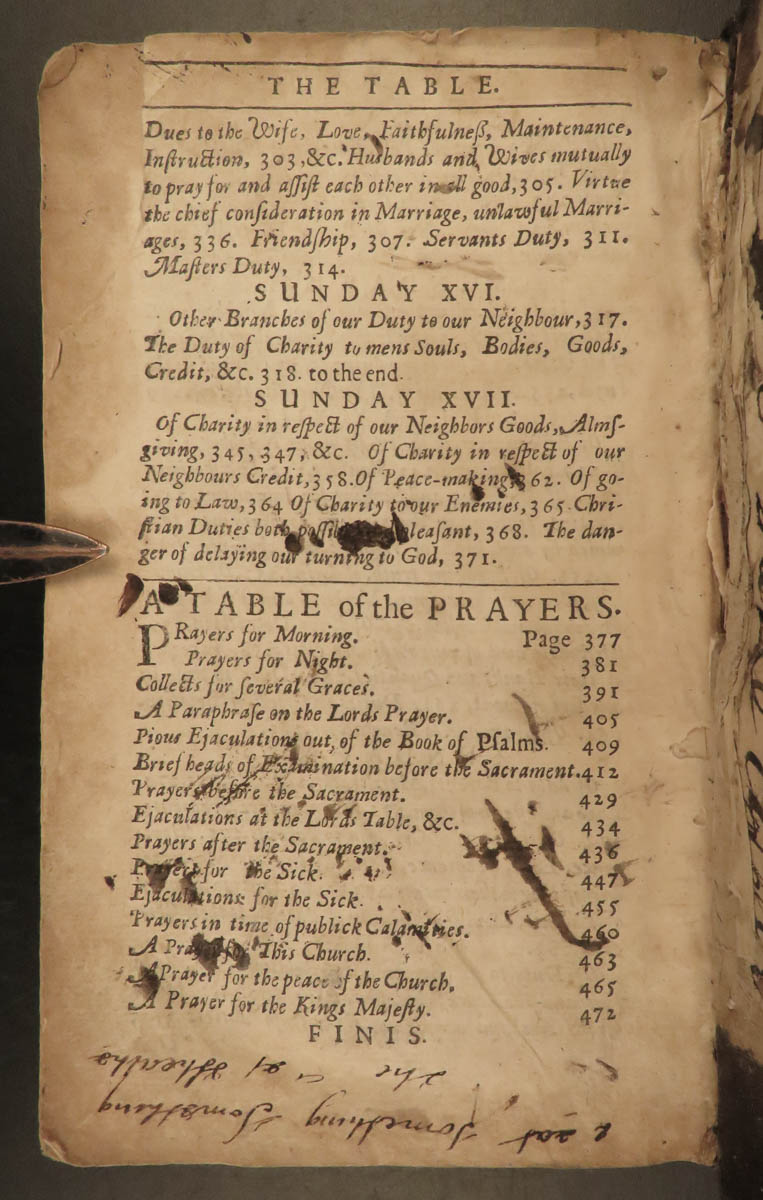 THE TABLE.
Dues to the Wife, Love, Faithfulneß, Maintenance,
Inſtruction, 303, &c. Husbands and Wives mutually
to pray for and aſſiſt each other in all good, 305. Virtue
the chief conſideration in Marriage, unlawful Marri-
ages, 336. Friendſhip, 307. Servants Duty, 311.
Maſters Duty, 314.
SUNDAY XVI.
Other Branches of our Duty to our Neighbour, 317.
The Duty of Charity to mens Souls, Bodies, Goods,
Credit, &c. 318. to the end.
SUNDAY XVII.
Of Charity in reſpect of our Neighbors Goods, Almſ-
giving, 345, 347, &c. Of Charity in reſpect of our
Neighbours Credit, 358. Of Peace-making, 362. Of go-
ing to Law, 364 Of Charity to our Enemies, 365. Chri-
ſtian Duties both pleaſant, 368. The dan-
ger of delaying our turning to God, 371.
A TABLE of the PRAYERS.
PRayers for Morning. Page 377
Prayers for Night. 381
Collects for ſeveral Graces. 391
A Paraphraſe on the Lords Prayer. 405
Pious Ejaculations out of the Book of Pſalms. 409
Brief heads of Examination before the Sacrament. 412
Prayers before the Sacrament. 429
Ejaculations at the Lords Table, &c. 434
Prayers after the Sacrament. 436
Prayers for the Sick. 447
Ejaculations for the Sick. 455
Prayers in time of publick Calamities. 460
A Prayer for This Church. 463
A Prayer for the peace of the Church. 465
A Prayer for the Kings Majeſty. 472
FINIS.
the
Something Something